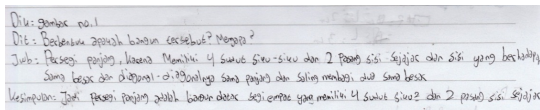 Dik: gambar no.1
Dit: Berbentuk apakah bangun tersebut? Mengapa?
Jwb: Persegi panjang, karena memiliki 4 sudut siku-siku dan 2 pasang sisi sejajar dan sisi yang berhadapan
sama besar dan diagonal-diagonalnya sama panjang dan saling membagi dua sama besar
Kesimpulan: Jadi Persegi panjang adalah bangun datar segi empat yang memiliki 4 sudut siku2 dan 2 pasang sisi sejajar